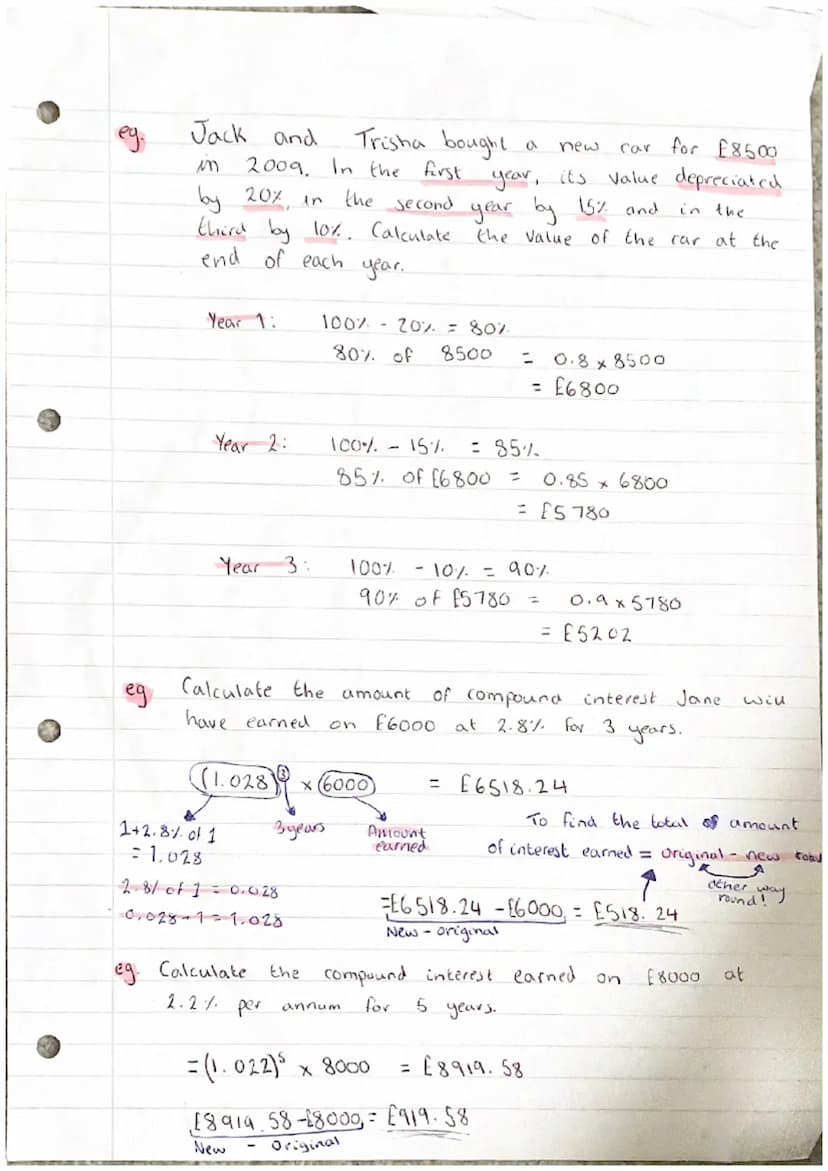 eg. Jack and Trisha bought a new car for £8500
in 2009. In the first year, its value depreciated
by 20%, in the second year by 15% and in the
third by 10%. Calculate the value of the car at the
end of each year.
Year 1: 100% - 20% = 80%
80% of 8500 = 0.8 x 8500
= £6800
Year 2: 100% - 15% = 85%
85% of £6800 = 0.85 x 6800
= £5780
Year 3: 100% - 10% = 90%
90% of £5780 = 0.9 x 5780
= £5202
eg Calculate the amount of compound interest Jane will
have earned on £6000 at 2.8% for 3 years.
(1.028)³ x 6000 = £6518.24
1+2.8% of 1
= 1.028
3 years
Amount
earned
To find the total of amount
of interest earned = original - new total
other way
round!
2.8% of 1 = 0.028
0.028+1 = 1.028
=£6518.24 - £6000 = £518.24
New - original
eg. Calculate the compound interest earned on £8000 at
2.2% per annum for 5 years.
= (1.022)⁵ x 8000 = £8919.58
£8919.58 - £8000 = £919.58
New - Original